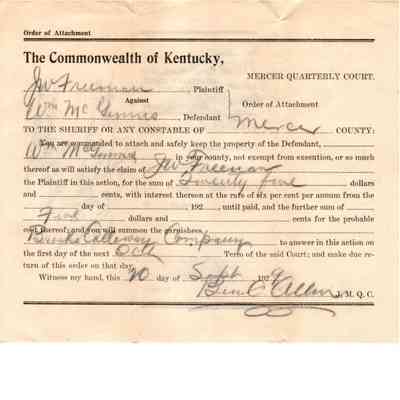 Order of Attachment
The Commonwealth of Kentucky,
MERCER QUARTERLY COURT.
JW Freeman Plaintiff
Against
Order of Attachment
Wm McGinnis, Defendant
Mercer
TO THE SHERIFF OR ANY CONSTABLE OF COUNTY:
You are commanded to attach and safely keep the property of the Defendant,
Wm McGinnis in your county, not exempt from execution, or so much
thereof as will satisfy the claim of JW Freeman
the Plaintiff in this action, for the sum of Twenty five dollars
and cents, with interest thereon at the rate of six per cent per annum from the
day of , 192 , until paid, and the further sum of
Five dollars and cents for the probable
cost thereof; and you will summon the garnishees,
Brooks Calloway Company to answer in this action on
the first day of the next Oct Term of the said Court; and make due re-
turn of this order on that day.
Witness my hand, this 20 day of Sept 192
Ben C Allin J. M. Q. C.